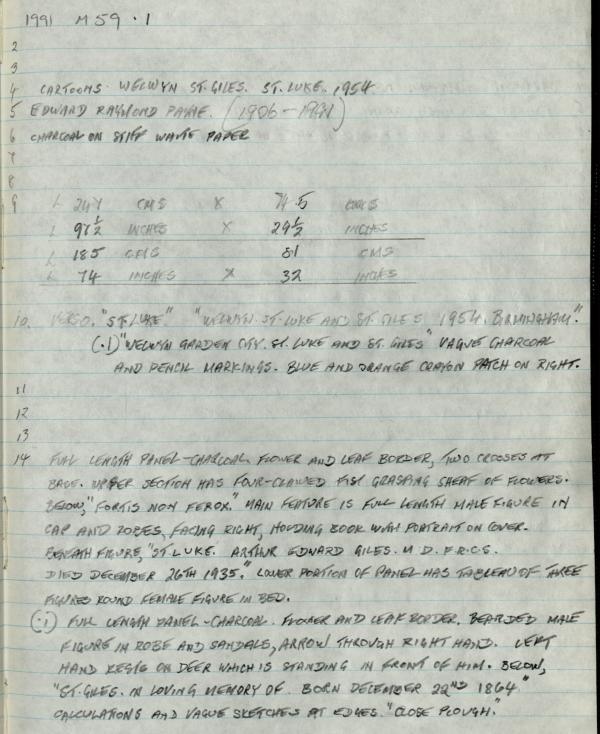 1991 M59.1
2
3
4 CARTOONS. WELWYN ST. GILES. ST. LUKE. 1954
5 EDWARD RAYMOND PAYNE. (1906-1991)
6 CHARCOAL ON STIFF WHITE PAPER
7
8
9 L 247 CMS X 74.5 CMS
L 97½ INCHES X 29½ INCHES
L 185 CMS 81 CMS
L 74 INCHES X 32 INCHES
10. VERSO. "ST. LUKE" "WELWYN. ST. LUKE AND ST. GILES 1954. BIRMINGHAM."
(.1) "WELWYN GARDEN CITY. ST. LUKE AND ST. GILES" VAGUE CHARCOAL
AND PENCIL MARKINGS. BLUE AND ORANGE CRAYON PATCH ON RIGHT.
11
12
13
14 FULL LENGTH PANEL-CHARCOAL. FLOWER AND LEAF BORDER, TWO CROSSES AT
BASE. UPPER SECTION HAS FOUR-CLAWED FIST GRASPING SHEAF OF FLOWERS.
BELOW, "FORTIS NON FEROX." MAIN FEATURE IS FULL LENGTH MALE FIGURE IN
CAP AND ROBES, FACING RIGHT, HOLDING BOOK WITH PORTRAIT ON COVER.
BENEATH FIGURE, "ST. LUKE. ARTHUR EDWARD GILES. M.D. F.R.C.S.
DIED DECEMBER 26TH 1935." LOWER PORTION OF PANEL HAS TABLEAU OF THREE
FIGURES ROUND FEMALE FIGURE IN BED.
(.1) FULL LENGTH PANEL-CHARCOAL. FLOWER AND LEAF BORDER. BEARDED MALE
FIGURE IN ROBE AND SANDALS, ARROW THROUGH RIGHT HAND. LEFT
HAND RESTS ON DEER WHICH IS STANDING IN FRONT OF HIM. BELOW,
"ST. GILES. IN LOVING MEMORY OF. BORN DECEMBER 22ND 1864."
CALCULATIONS AND VAGUE SKETCHES AT EDGES. "CLOSE PLOUGH."